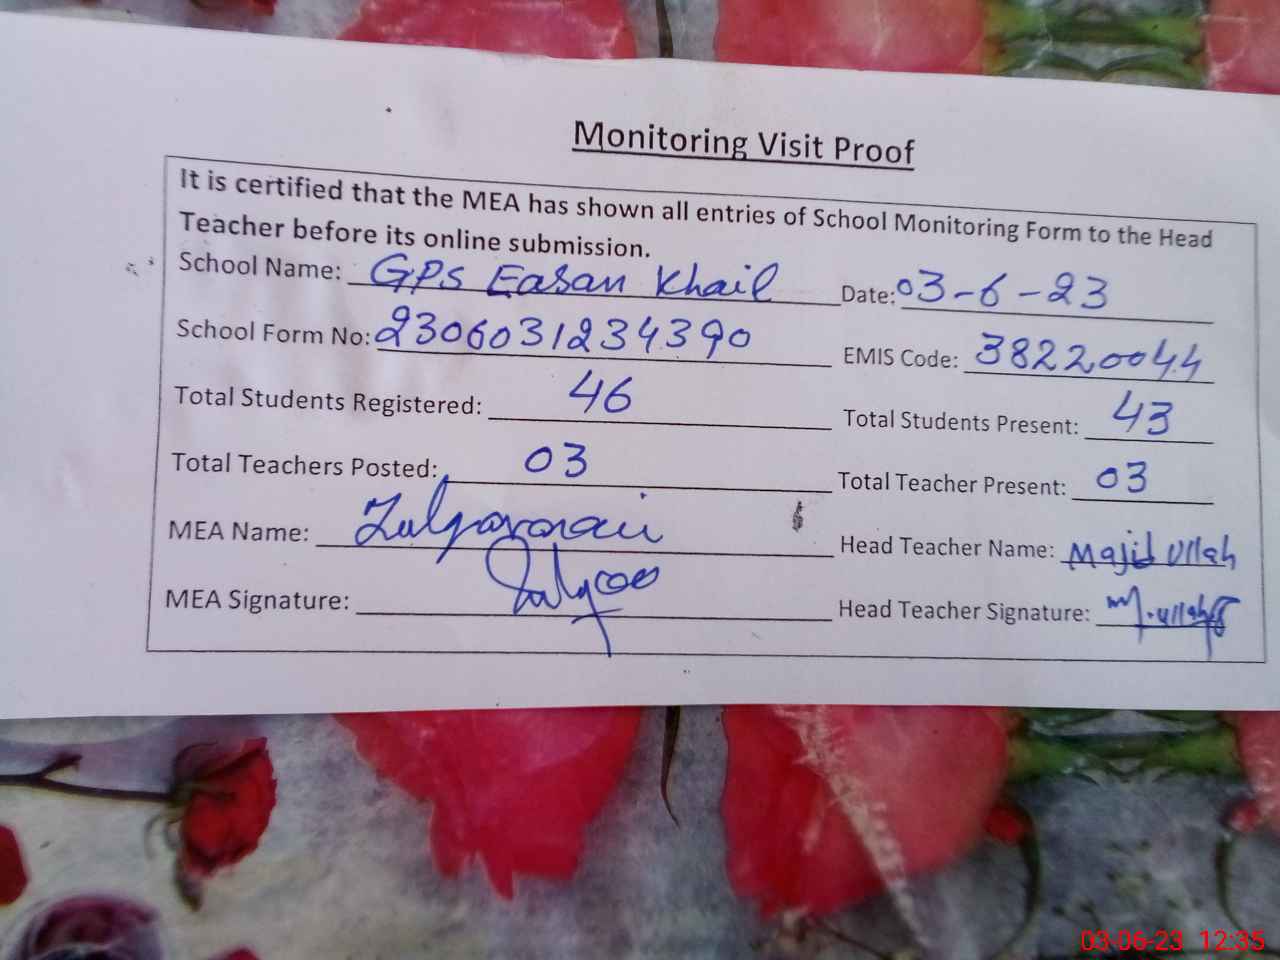 Monitoring Visit Proof
It is certified that the MEA has shown all entries of School Monitoring Form to the Head
Teacher before its online submission.
School Name: GPS Easan Khail Date: 03-6-23
School Form No: 2306031234390 EMIS Code: 38220044
Total Students Registered: 46 Total Students Present: 43
Total Teachers Posted: 03 Total Teacher Present: 03
MEA Name: Head Teacher Name: Majid Ullah
MEA Signature: Head Teacher Signature: M.ullah
03-06-23 12:35